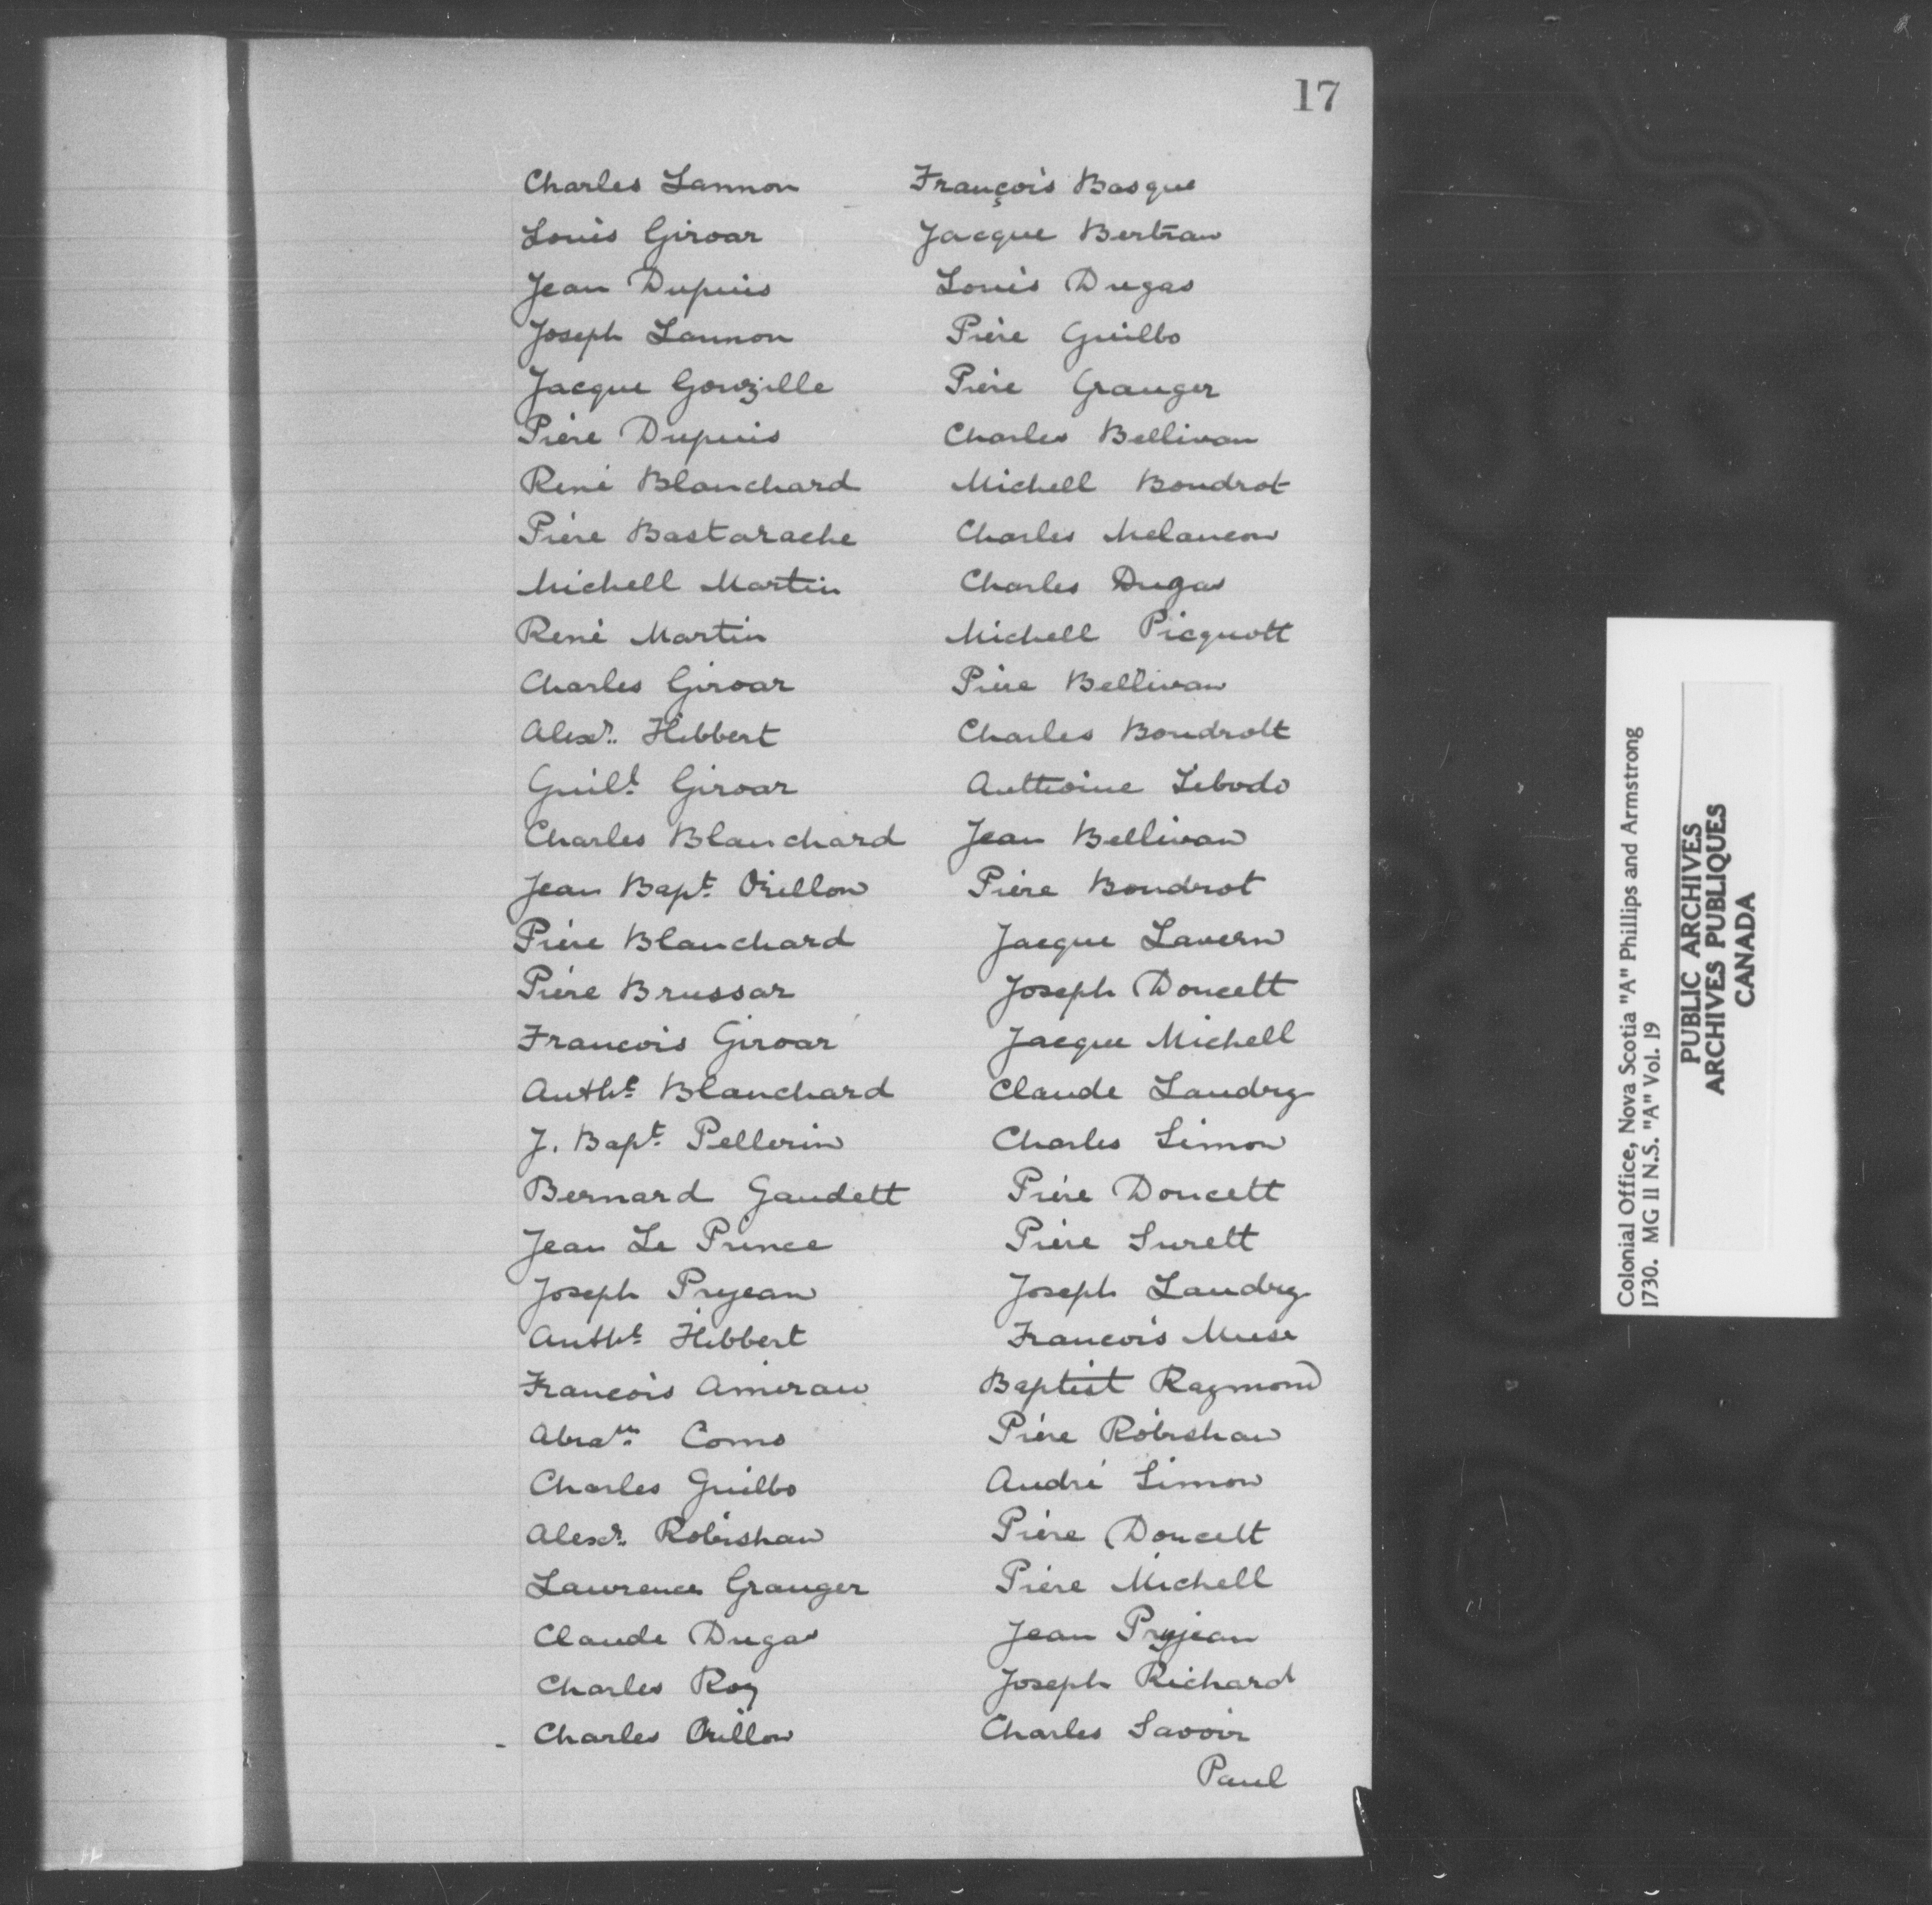 17
Charles Lannon François Basque
Louis Giroar Jacque Bertraw
Jean Dupuis Louis Dugas
Joseph Lannon Piére Guilbo
Jacque Gouzille Piére Granger
Piére Dupuis Charles Bellivau
René Blanchard Michell Boudrot
Piére Bastarache Charles Melancon
Michell Martin Charles Dugas
René Martin Michell Picquott
Charles Giroar Piére Bellivau
Alexr. Hibbert Charles Boudrott
Guilt. Giroar Anthoine Lebodo
Charles Blanchard Jean Bellivau
Jean Bapt. Orillon Piére Boudrot
Piére Blanchard Jacque Lavern
Piére Brussar Joseph Doucett
Francois Giroar Jacque Michell
Anthe. Blanchard Claude Landry
J. Bapt. Pellerin Charles Simon
Bernard Gaudett Piére Doucett
Jean Le Prince Piére Surett
Joseph Pryean Joseph Landry
Anthe. Hibbert Francois Muse
Francois Amiraw Baptist Raymond
Abram. Como Piére Robishaw
Charles Guilbo André Simon
Alexr. Robishaw Piére Doucett
Lawrence Granger Piére Michell
Claude Dugas Jean Pryjean
Charles Roy Joseph Richard
Charles Orillon Charles Savoir
Paul
Colonial Office, Nova Scotia "A" Phillips and Armstrong
1730. MG 11 N.S. "A" Vol. 19
PUBLIC ARCHIVES
ARCHIVES PUBLIQUES
CANADA